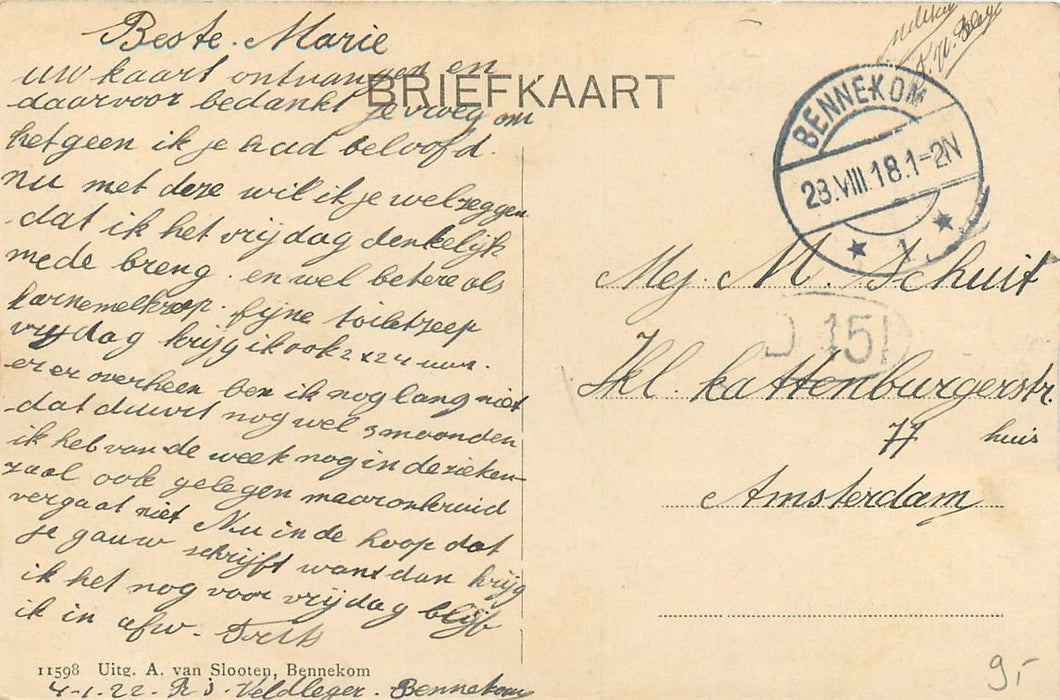 Beste Marie
uw kaart ontvangen en
daarvoor bedankt je vroeg om
hetgeen ik je had beloofd.
nu met deze wil ik je wel zeggen
dat ik het vrijdag denkelijk
mede breng. en wel betere als
karnemelkzeep. fijne toiletzeep
vrijdag krijg ik ook 2x24 uur.
er er overheen ben ik nog lang niet
dat duurt nog wel 3 maanden
ik heb van de week nog in de zieken-
zaal ook gelegen maar onkruid
vergaat niet Nu in de hoop dat
je gauw schrijft want dan krijg
ik het nog voor vrijdag blijf
ik in afw.
11598 Uitg. A. van Slooten, Bennekom
4-1.22. Veldleger. Bennekom
BRIEFKAART
BENNEKOM
28.VIII.18.1-2N
1
Mej. M. Schuit
151
Kl. Kattenburgerstr.
77 huis
Amsterdam
9,-